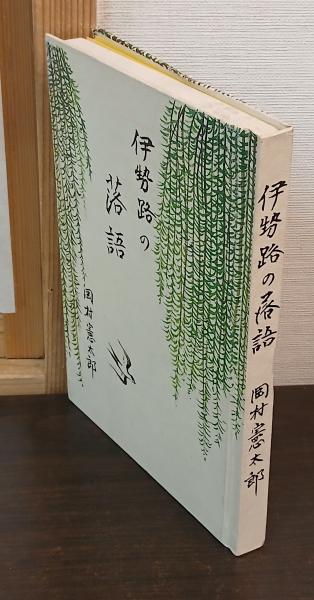 伊勢路の
落語
岡村憲太郎
伊勢路の落語
岡村憲太郎